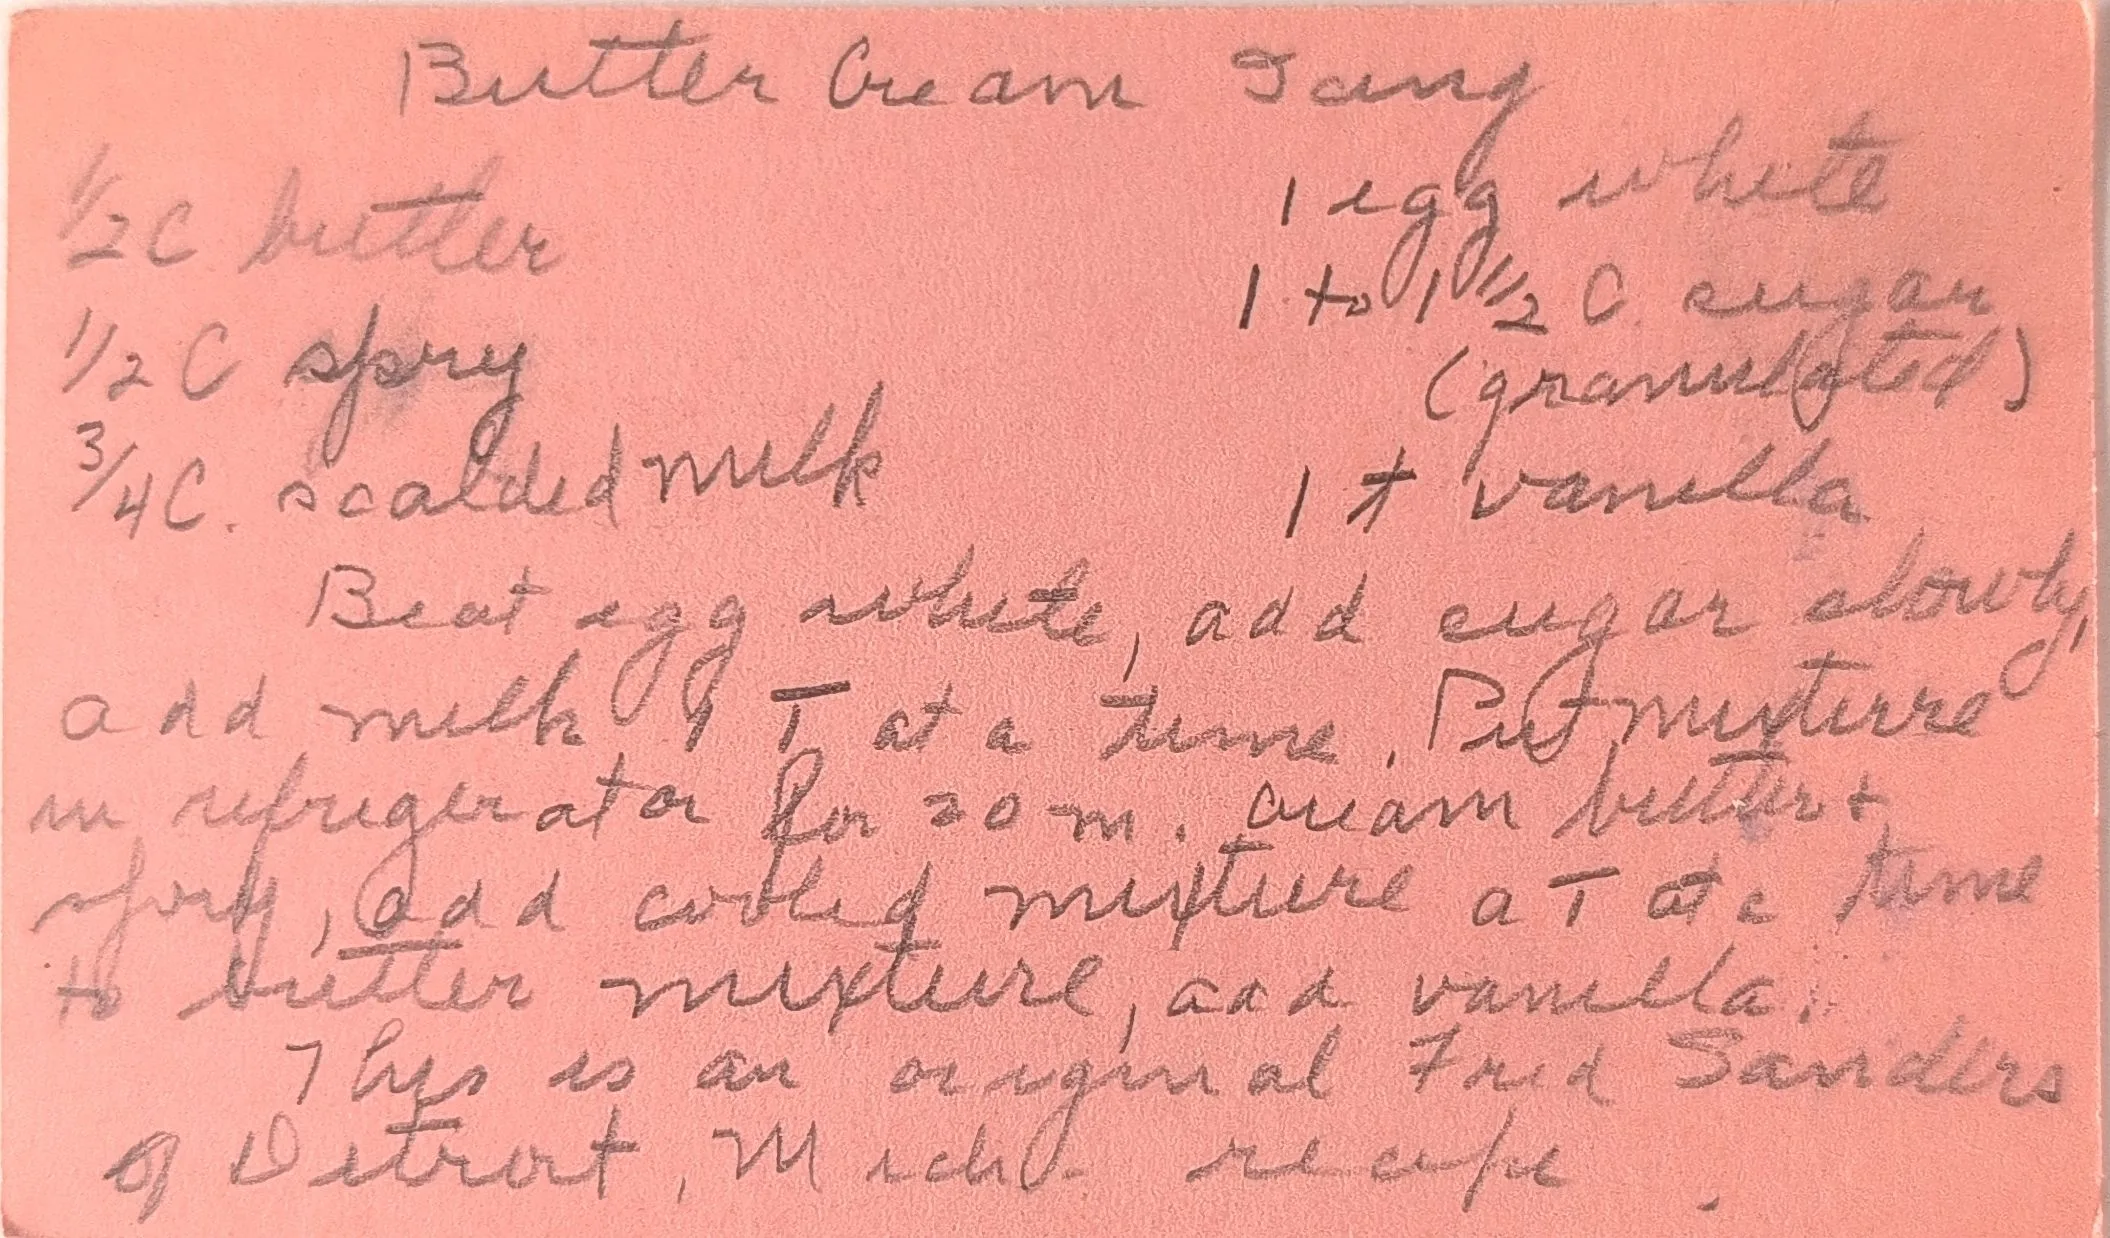 Butter Cream Icing
1/2 C butter
1 egg white
1/2 C spry
1 to 1 1/2 C. sugar
(granulated)
3/4 C. scalded milk
1 t vanilla
Beat egg white, add sugar slowly,
add milk 1 T at a time. Put mixture
in refrigerator for 20 m. cream butter +
spry, add cooled mixture a T at a time
to butter mixture, add vanilla.
This is an original Fred Sanders
of Detroit, Mich. recipe.